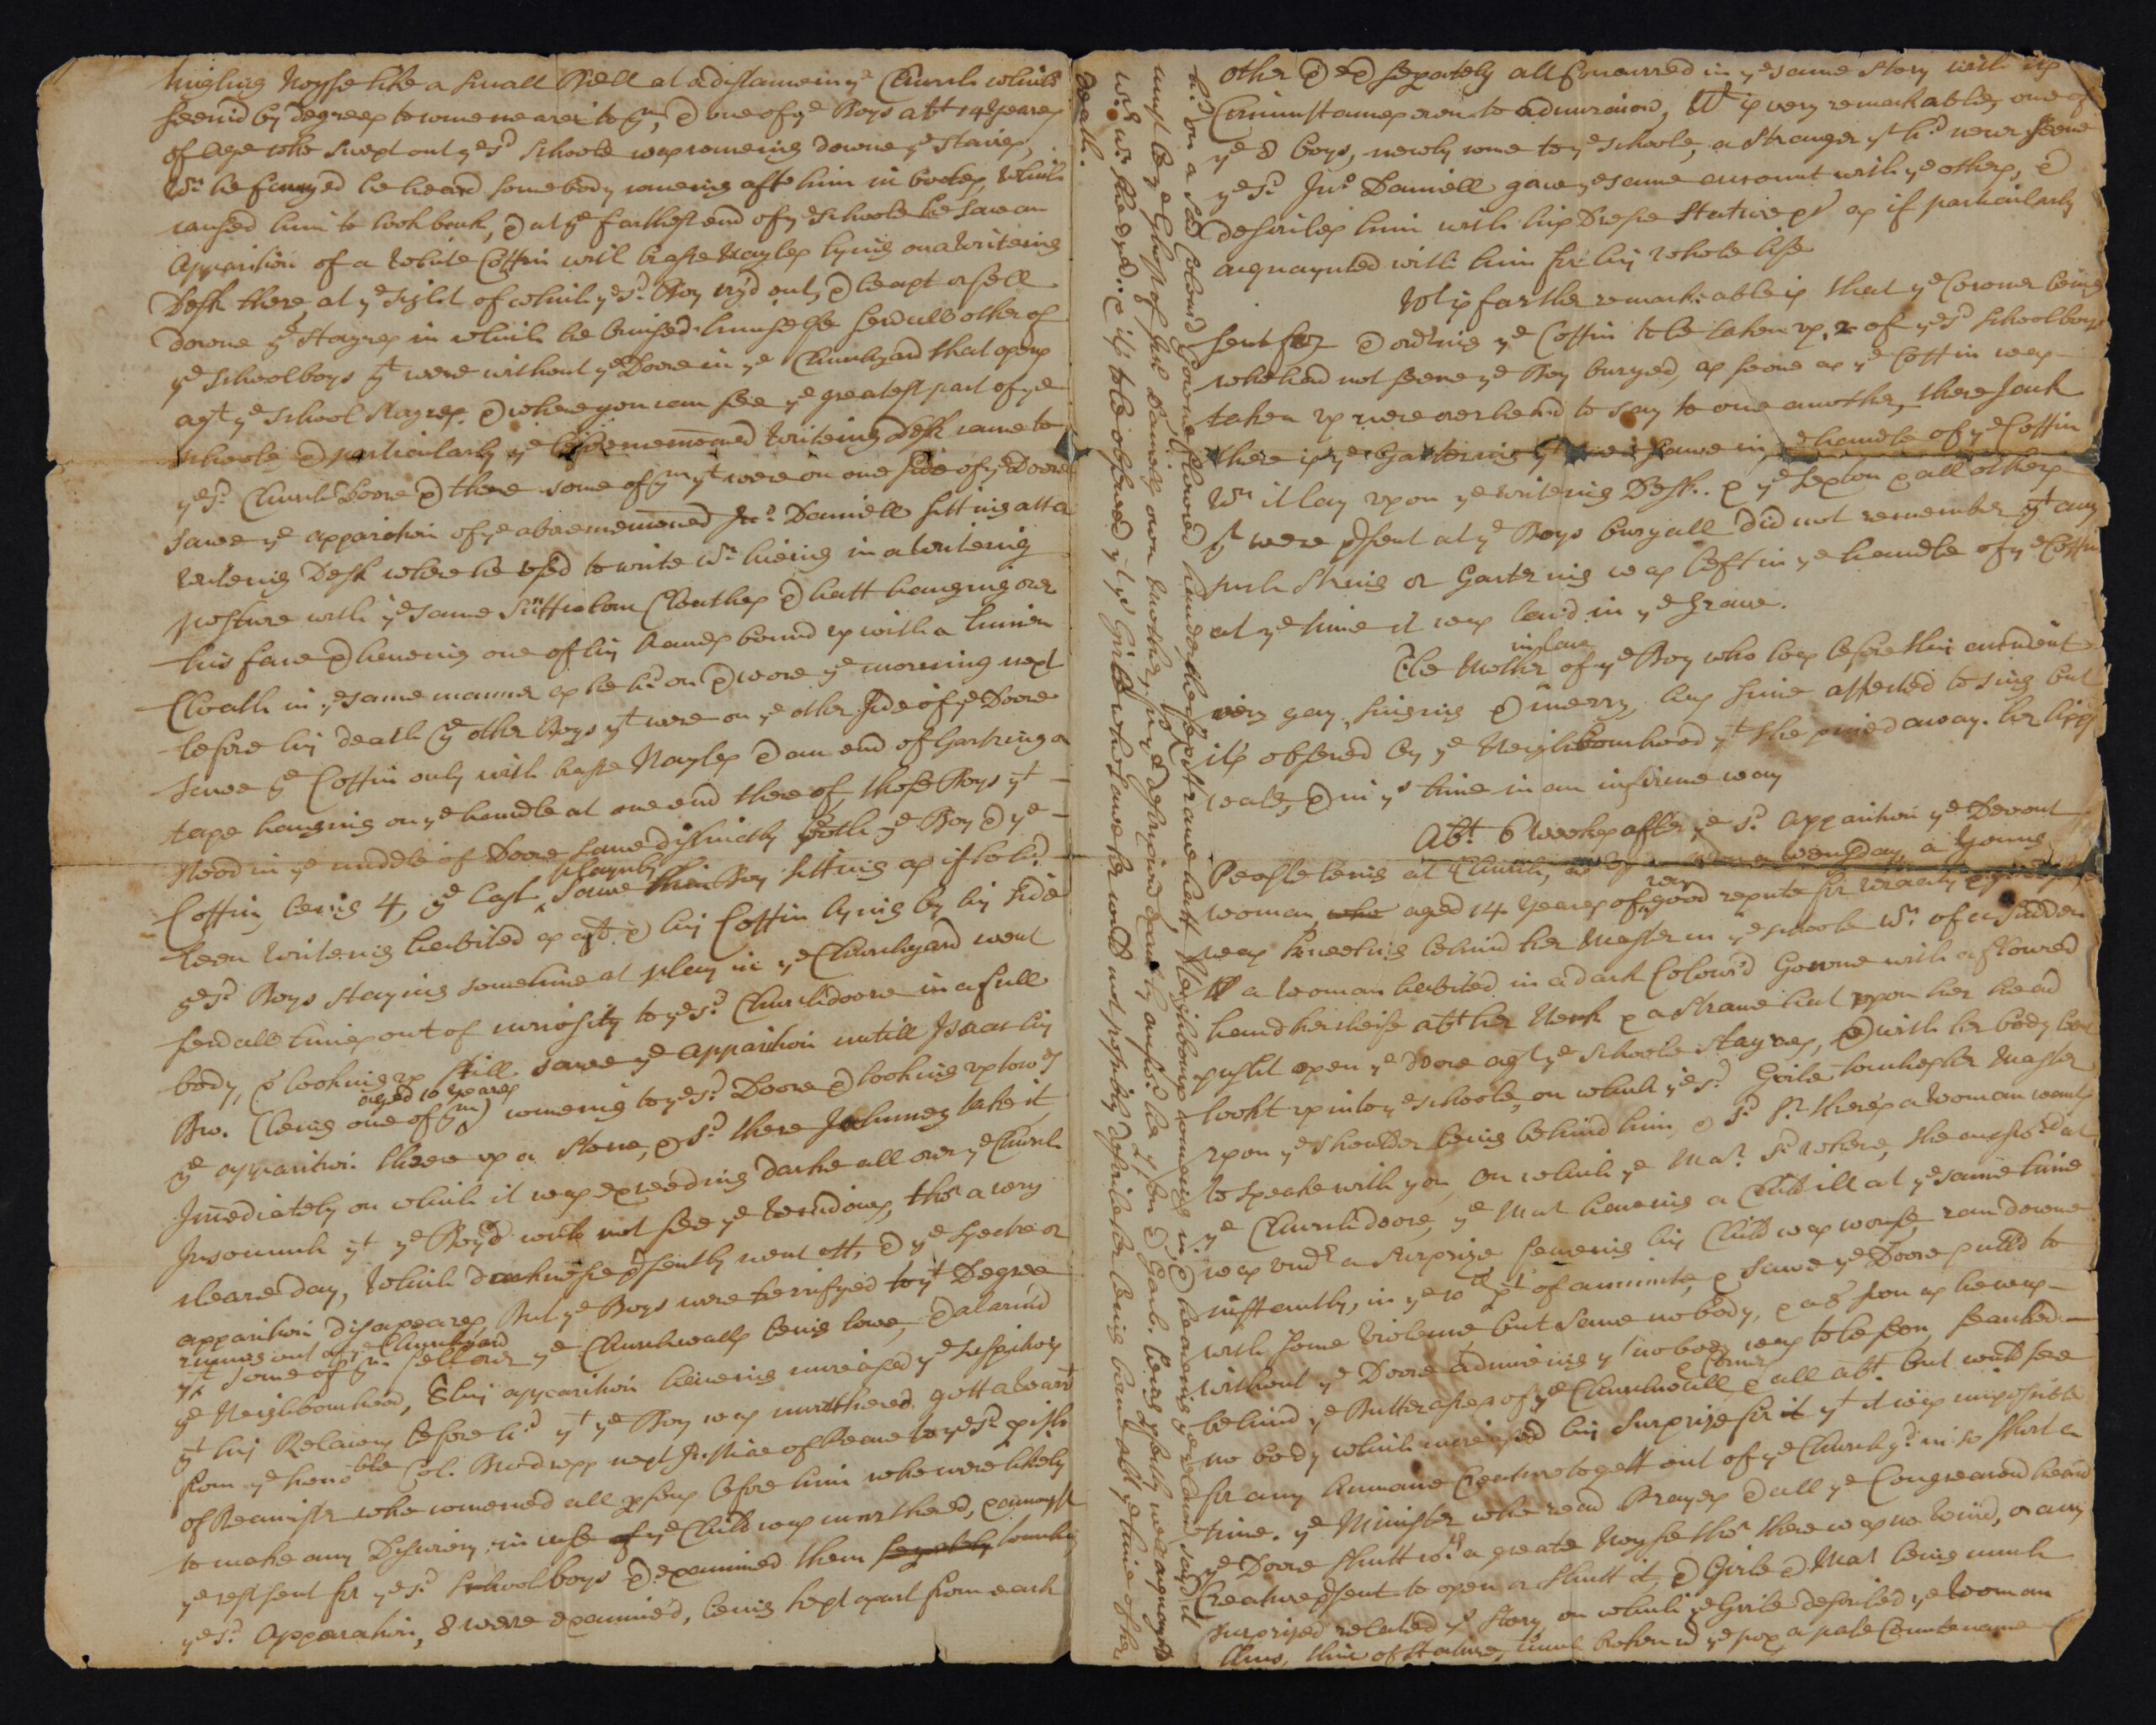 tingling Noyse like a small Bell at a distance in yᵉ Church which
seem'd by degrees to come nearer to yᵐ, & one of yᵉ Boys abᵗ 14 yeares
of Age who swept out yᵉ sᵈ schoole was comeing downe yᵉ staires,
wⁿ he fancyed he heard some body comeing aftʳ him in bootes, which
caused him to look back, & at yᵉ farthest end of yᵉ schoole he saw an
Apparition of a white Coffin with brasse Nayles lying on a writeing
Desk there, at yᵉ sight of which yᵉ sᵈ Boy cry'd out, & leapt or fell
downe yᵉ stayres in which he bruised himselfe severall other of
yᵉ schoolboys yᵗ were without yᵉ Doore in yᵉ Churchyard that opens
agᵗ yᵉ school stayres, & where you can see yᵉ greatest part of yᵉ
schoole, & particularly yᵉ beforemenconed writeing Desk came to
yᵉ sᵈ Church Doore & there some of yᵐ yᵗ were on one side of yᵉ Doore
sawe yᵉ apparition of yᵉ abovemenconed Jnᵒ Daniell sitting att a
writeing Desk where he used to write wⁿ liveing in a writeing
posture with yᵉ same Cloathes & hatt hanging over
his face & haveing one of his hands bound up with a linnen
Cloath in yᵉ same manner as he hᵈ on & wore yᵉ morning next
before his death yᵉ other Boys yᵗ were on yᵉ other side of yᵉ Doore
sawe yᵉ Coffin only with brasse Nayles & an end of Gartring or
tape hanging on yᵉ handle at one end there of, those Boys yᵗ
stood in yᵉ middle of Doore sawe distinctly both yᵉ Boy & yᵉ
Coffin, being 4, yᵉ last playnly sawe this Boy sitting as if he hᵈ
been writeing habited as agᵗ & his Coffin lying by his side
yᵉ sᵈ Boys staying sometime at play in yᵉ Churchyard went
severall times out of curiosity to yᵉ sᵈ Churchdoore in a full
body, & looking up still sawe yᵉ apparition untill Isaac his
Bro. (being one of yᵐ) aged 10 yeares comeing to yᵉ sᵈ Doore & looking up towᵈˢ
yᵉ apparition threw up a stone, & sᵈ there Johnney take it
Immediately on which it was exceeding darke all over yᵉ Church
Insomuch yᵗ yᵉ Boys could not see yᵉ windows, tho' a very
cleare day, which darknesse psently went off, & yᵉ spectre or
apparition disapeares, But yᵉ Boys were terrifyed to yᵗ Degree
yᵗ some of yᵐ runing out of yᵉ Churchyard fell over yᵉ Churchwalls being lowe, & alarm'd
yᵉ Neighbourhood, this apparition haveing increased yᵉ suspition
yᵗ his Relacons before hᵈ yᵗ yᵉ Boy was murthered gott a warrᵗ
from yᵉ honoᵇˡᵉ Col. Brodrepp next Justice of Peace to yᵉ sᵈ pish
of Beamistr who conven'd all psons before him who were likely
to make any Discovery in case yᵉ Child was murthered, & amongst
yᵉ rest sent for yᵉ sᵈ schoolboys & examined them sepately touching
yᵉ sᵈ Apparation, 8 were examined, being kept apart from each
other & sepately all concurred in yᵉ same story with its
Circumstances even to admiracon, Wᵗ is very remarkable, one of
yᵉ 8 boys, newly come to yᵉ schoole, a stranger yᵗ hᵈ never seene
yᵉ sᵈ Jnᵒ Daniell gave yᵉ same account with yᵉ others, &
describes him with his Dresse stature &c as if particularly
acquaynted with him for his whole life
Wᵗ is farther remarkable is that yᵉ Coroner being
sent for & ordʳing yᵉ Coffin to be taken up, 2 of yᵉ sᵈ schoolboys
who had not seene yᵉ Boy buryed, as soone as yᵉ Coffin was
taken up were overheard to say to one another, there Jack
there is yᵉ Gartering yᵗ we sawe in yᵉ handle of yᵉ Coffin
wⁿ it lay upon yᵉ writeing Desk. & yᵉ sexton & all others
yᵗ were psent at yᵉ Boys buryall did not remember yᵗ any
such string or Gartering was left in yᵉ handle of yᵉ Coffin
at yᵉ time it was lay'd in yᵉ Grave.
The Mother in lawe of yᵉ Boy who was before this accident
very gay, singing & merry, has since affected to sing but
its observed by yᵉ Neighbourhood yᵗ she pined away. her lipps
wᵗʰ, & in yˢ time in an infirme way
Abᵗ 6 weekes after yᵉ sᵈ apparition yᵉ Devout
People being at Church, a Wensday, a Young
woman who aged 14 yeares of very good repute for veracity
was kneeling behind her Master in yᵉ schoole wⁿ of a sudden
a woman habited in a dark Colour'd Gowne with a flowred
handkercheife abᵗ her Neck & a strawe hat upon her head
pusht open yᵉ doore agᵗ yᵉ schoole stayres, & with her body bent
lookt up into yᵉ schoole, on which yᵉ sᵈ Girle touches her Master
upon yᵉ shoulder being behind him, & sᵈ Sʳ there's a woman wants
to speake with you, On which yᵉ Maʳ sᵈ where, she answʳd at
yᵉ Church doore, yᵉ Maʳ haveing a Child ill at yᵉ same time
was undʳ a surprize fearing his Child was worse, ran downe
instantly, in yᵉ 10ᵗʰ pᵗ of a minute, & sawe yᵉ Doore pull'd to
with some violence but sawe nobody, & as soon as he was
without yᵉ Doore admireing yᵗ nobody was to be seen, searched
behind yᵉ Buttresses of yᵉ Churchwall & Corners & all abᵗ but could see
no body which increased his surprize for it yᵗ it was impossible
for any humane Creature to gett out of yᵉ Churchyᵈ in so short a
time. yᵉ Minister who read Prayers & all yᵉ Congreacon heard
yᵉ Doore shutt wᵗʰ a greate Noyse tho' there was no wind, or any
Creature psent to open or shutt it, & Girle & Maʳ being much
surprized related yˢ story on which yᵉ Girle described yᵉ woman
thus, thin of stature, much broken wᵗʰ yᵉ pox a pale Countenance
hᵈ on a sad Colour'd Gowne flowred handkercheife & strawe hatt Neighbours comeing in & heareing yᵉ relacon sayd it
must be yᵉ Ghost of Jnᵒ Daniels own Mother,
death.